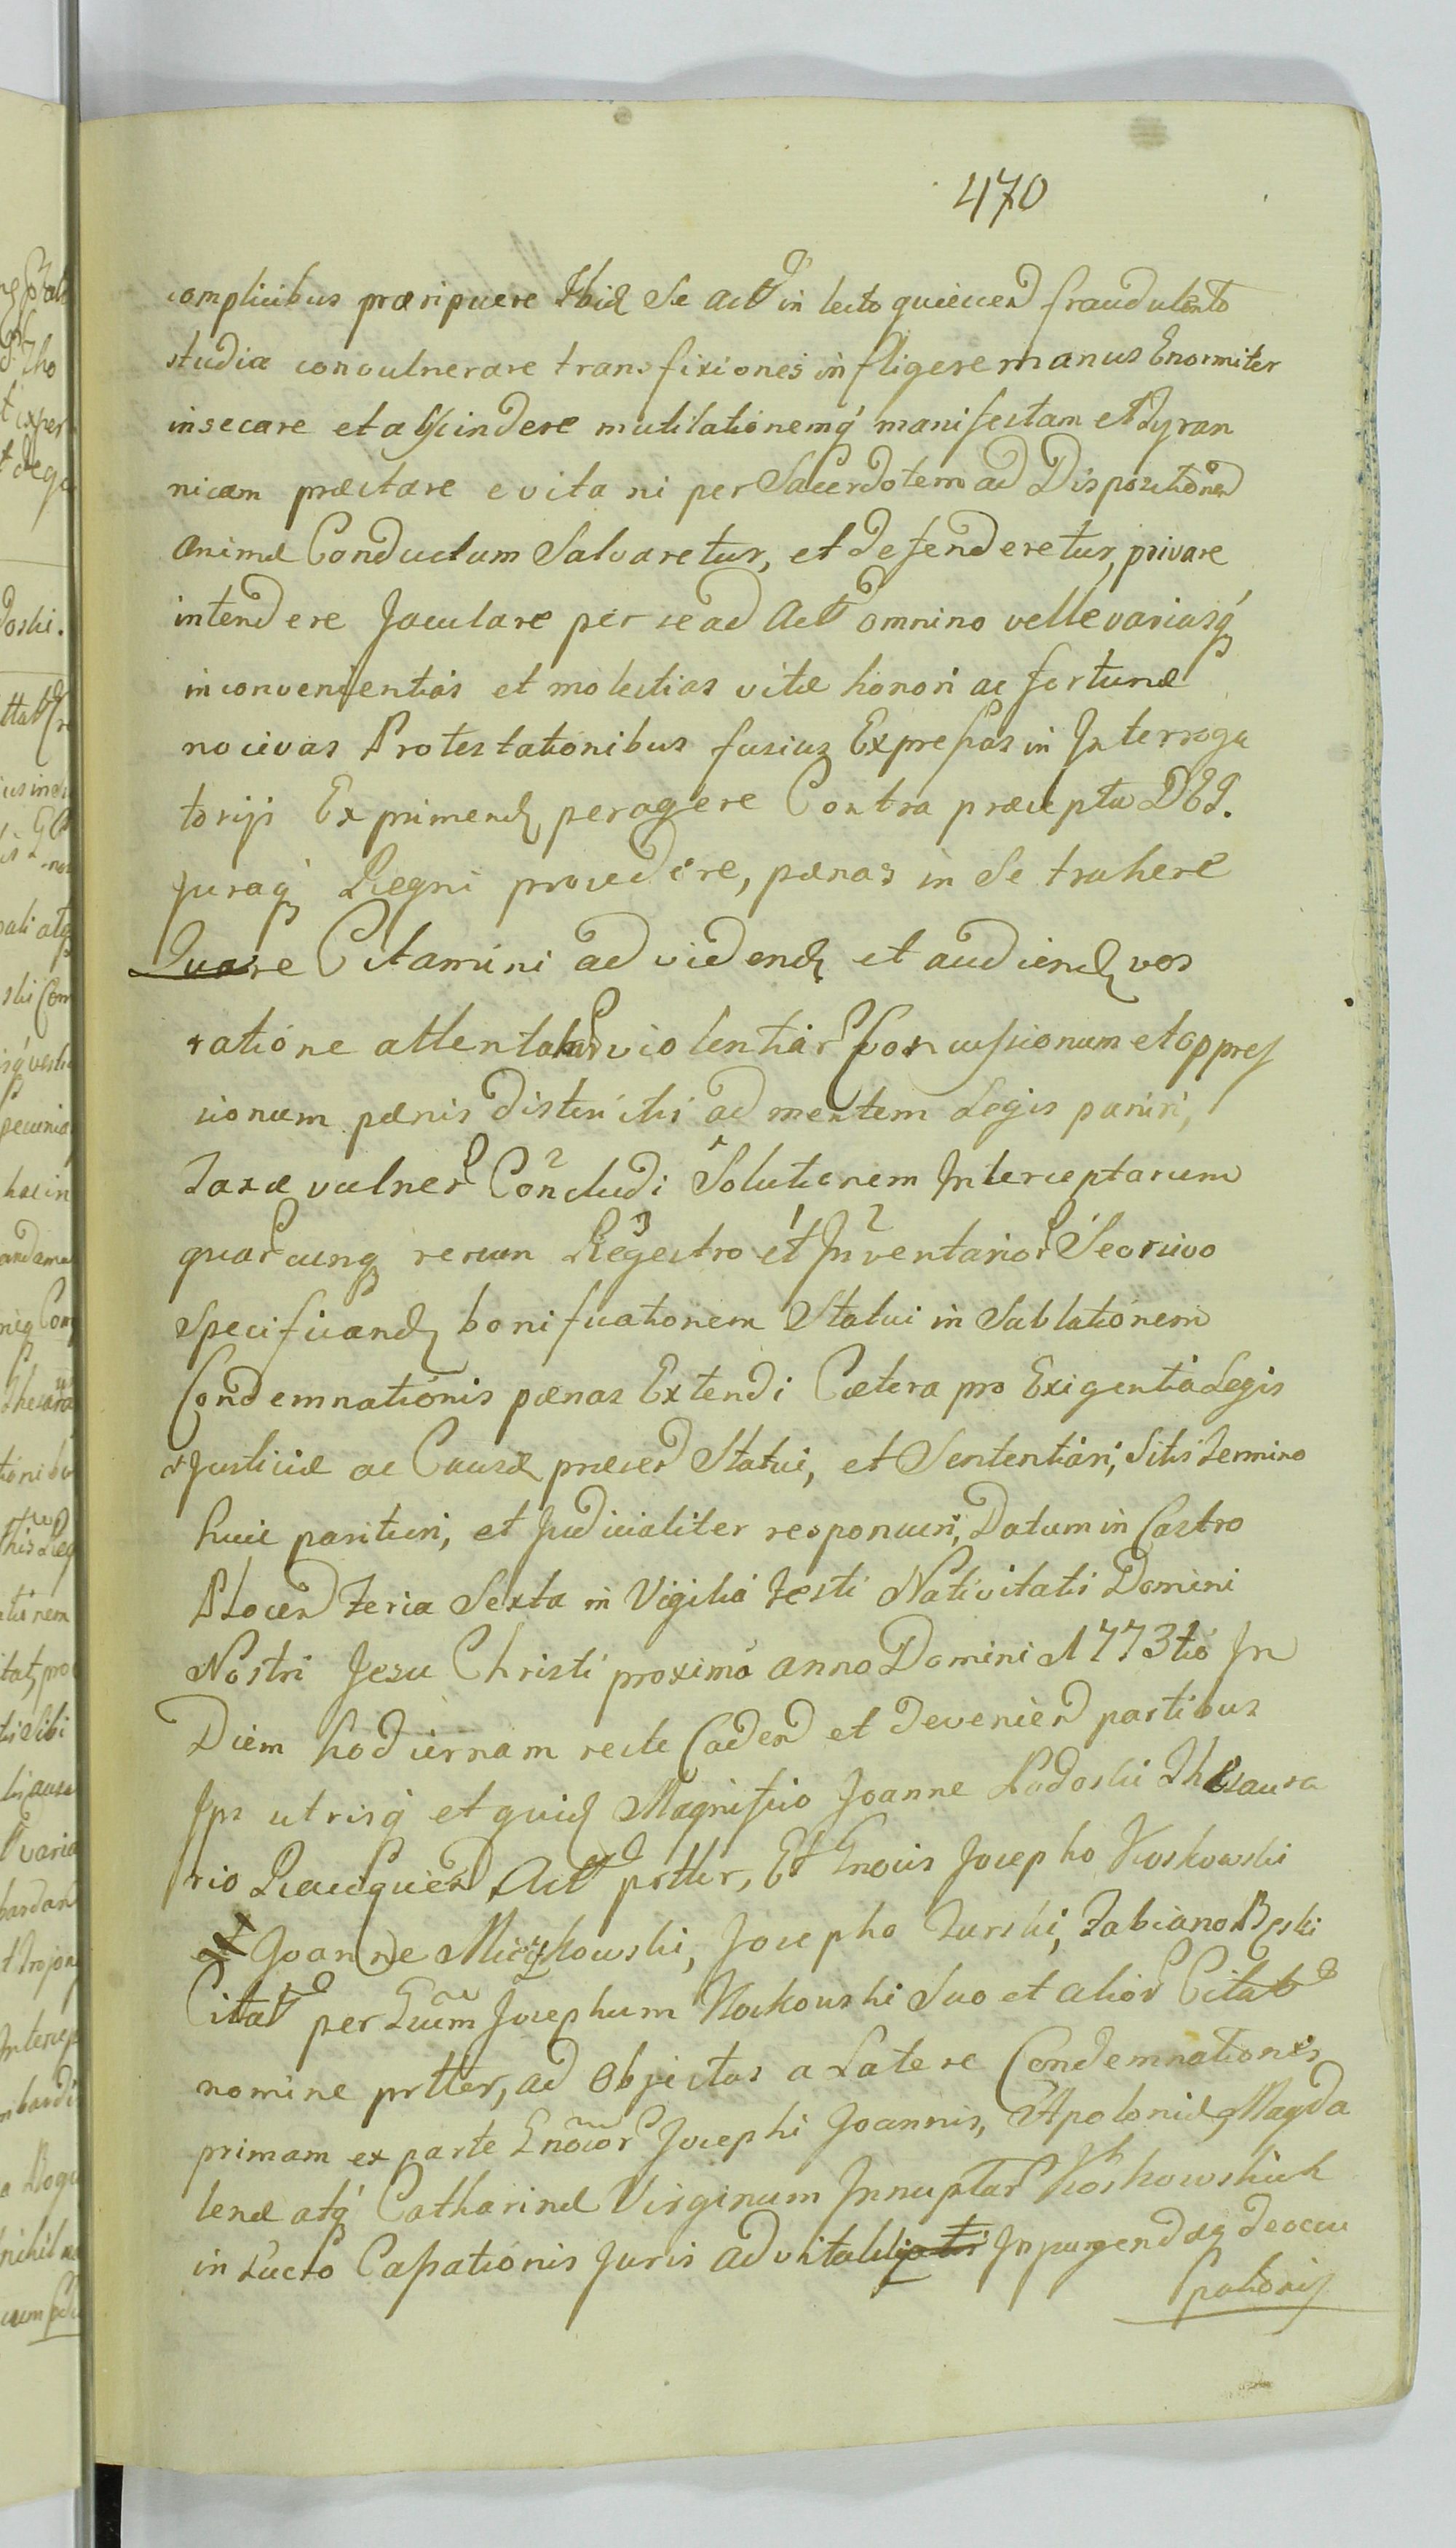 470
complicibus præripuere Ibid Se act in lecto quiescen fraudulento
studia convulnerare transfixiones infligere manus Enormiter
insecare et abscindere mutilationemq manifestam et Tyran
nicam præstare e vita ni per Sacerdotem ad Dispositionem
Animæ Conductum Salvaretur, et defenderetur, privare
intendere Jaculare per se ad Act omnino velle variasq
inconvenientias et molestias vitæ honori ac fortunæ
nocivas Protestationibus fusius Expressas in Interroga
torijs Exprimend peragere Contra præcepta DEI.
Juraq Regni procedere, pænas in Se trahere
Quare Citamini ad vidend et audiend vos
ratione attentatar violentiar Concussionum et oppres
sionum pænis districtis ad mentem Legis puniri,
Taxæ vulner Concludi Solutionem Interceptarum
quarcunq rerum Regestro et Inventarior Seorsivo
Specificand bonificationem Statui in Sublationem
Condemnationis pænas Extendi Cætera pro Exigentia Legis
Justiciæ ac Causæ præsen Statui, et Sententiari, Sitis Termino
huic parituri, et Judicialiter responsuri, Datum in Castro
Plocen Feria Sexta in Vigilia Festi Nativitatis Domini
Nostri Jesu Christi proxima anno Domini 1773tio In
Diem hodiernam recte Caden et devenien partibus
Ips utrisq et quid Magnifico Joanne Ladoski Thesaura
rio Raciąguien Act prtter, Et Gnosis Josepho Koskowski
Joanne Miczkowski, Josepho Turski, Fabiano Bęski
Citat per Gnum Josephum Koskowski Suo et alior Citat
nomine prtter, ad Objectas a Latere Condemnationes
primam ex parte Gnosor Josephi Joannis, Apoloniæ, Magda
lenæ atq Catharinæ Virginum Innuptar Koskowskich
in Lucro Cassationis Juris advitalit Inpurgendæq deoccu
pationis